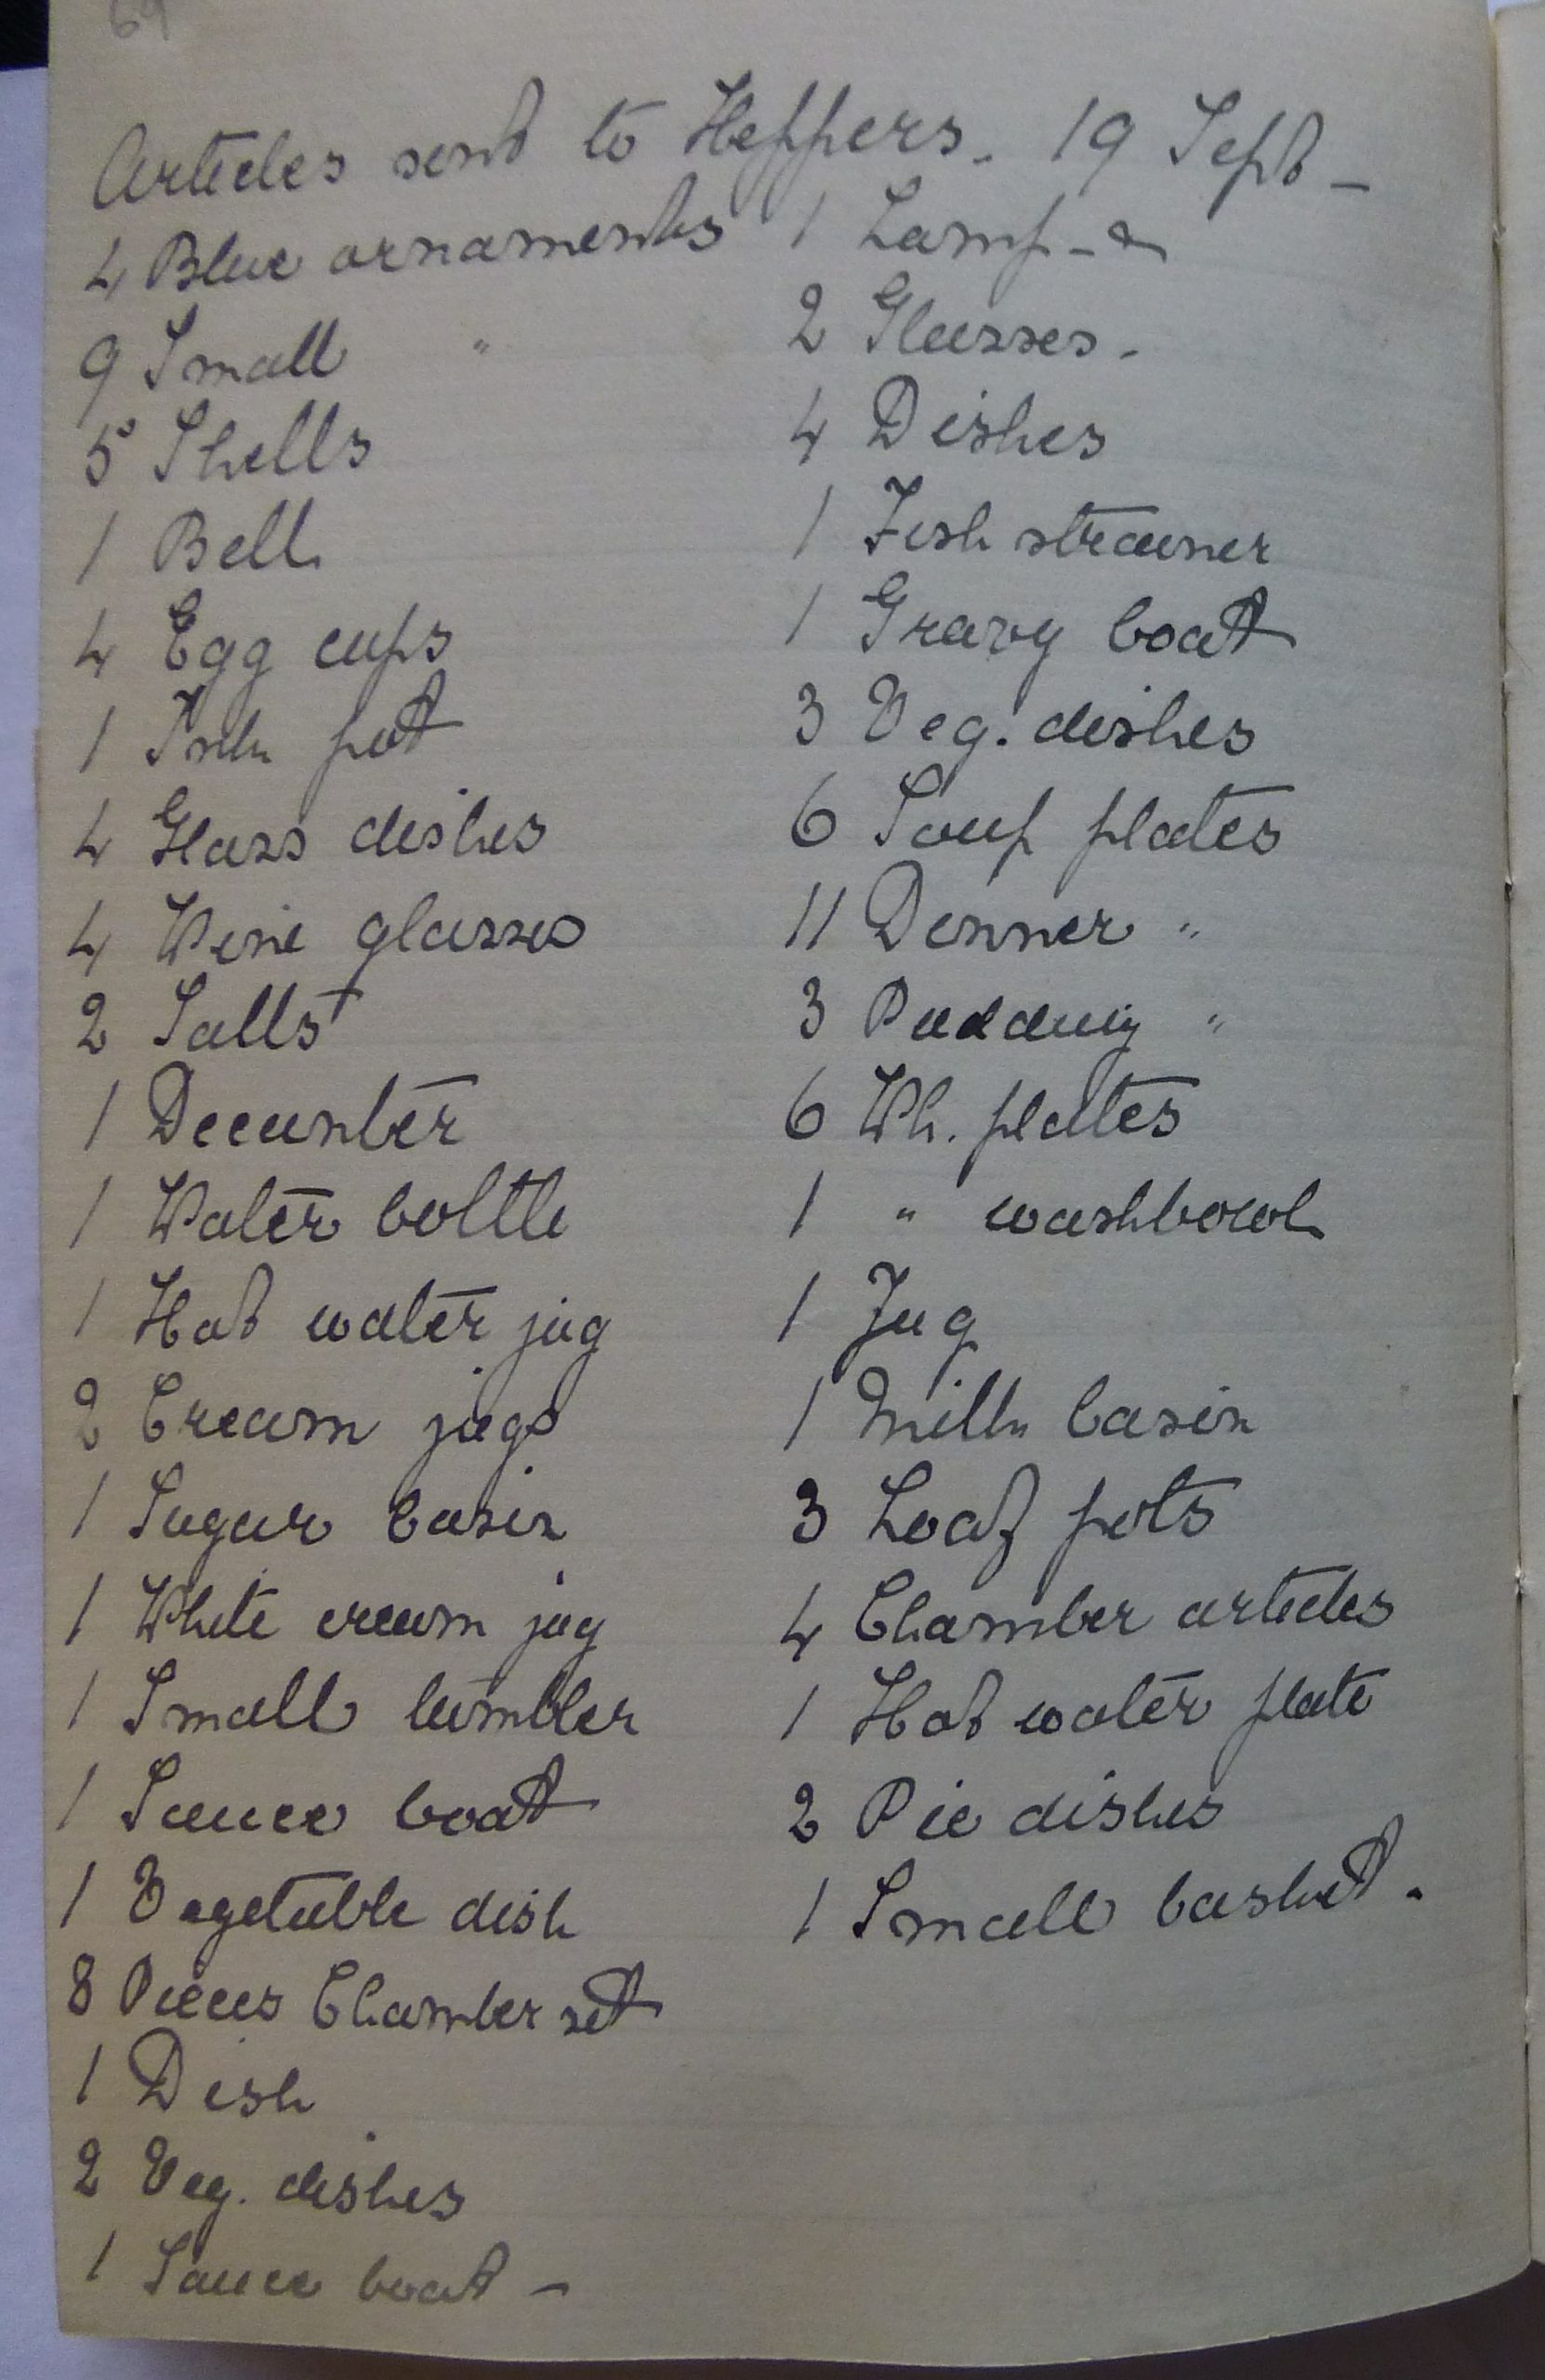 69
Articles sent to Heppers. 19 Sept -
4 Blue ornaments
9 Small "
5 Shells
1 Bell
4 Egg cups
1 Ink pot
4 Glass dishes
4 Wine glasses
2 Salts
1 Decanter
1 Water bottle
1 Hot water jug
2 Cream jugs
1 Sugar basin
1 White cream jug
1 Small tumbler
1 Sauce boat
1 Vegetable dish
8 Pieces Chamber set
1 Dish
2 Veg. dishes
1 Sauce boat -
1 Lamp -
2 Glasses.
4 Dishes
1 Fish strainer
1 Gravy boat
3 Veg. dishes
6 Soup plates
11 Dinner "
3 Pudding "
6 Wh. plates
1 " washbowl
1 Jug
1 Milk basin
3 Loaf pots
4 Chamber articles
1 Hot water plate
2 Pie dishes
1 Small basket.